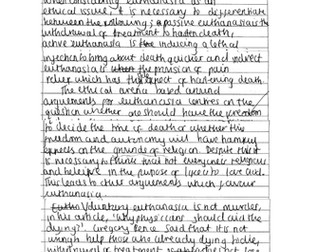 when considering euthanasia as an
ethical issue, it is necessary to differentiate
between the following; passive euthanasia is the
withdrawal of treatment to hasten death,
active euthanasia is the inducing a lethal
injection to bring about death quicker and indirect
euthanasia is the provision of pain
relief which has the effect of hastening death.
The ethical arena based around
arguments for euthanasia centres on the
question whether one should have the freedom
to decide the time of death or whether this
freedom and autonomy will have
effects on the grounds of religion. Despite this it
is necessary to think that not everyone religious
and believe in the purpose of life to last
This leads to other arguments which favour
euthanasia.
Voluntary euthanasia is not murder,
in his article, 'Why physicians should aid the
dying?'. Gregory Pence said that it is not
wrong to help those who already dying to die,
withdrawal of treatment